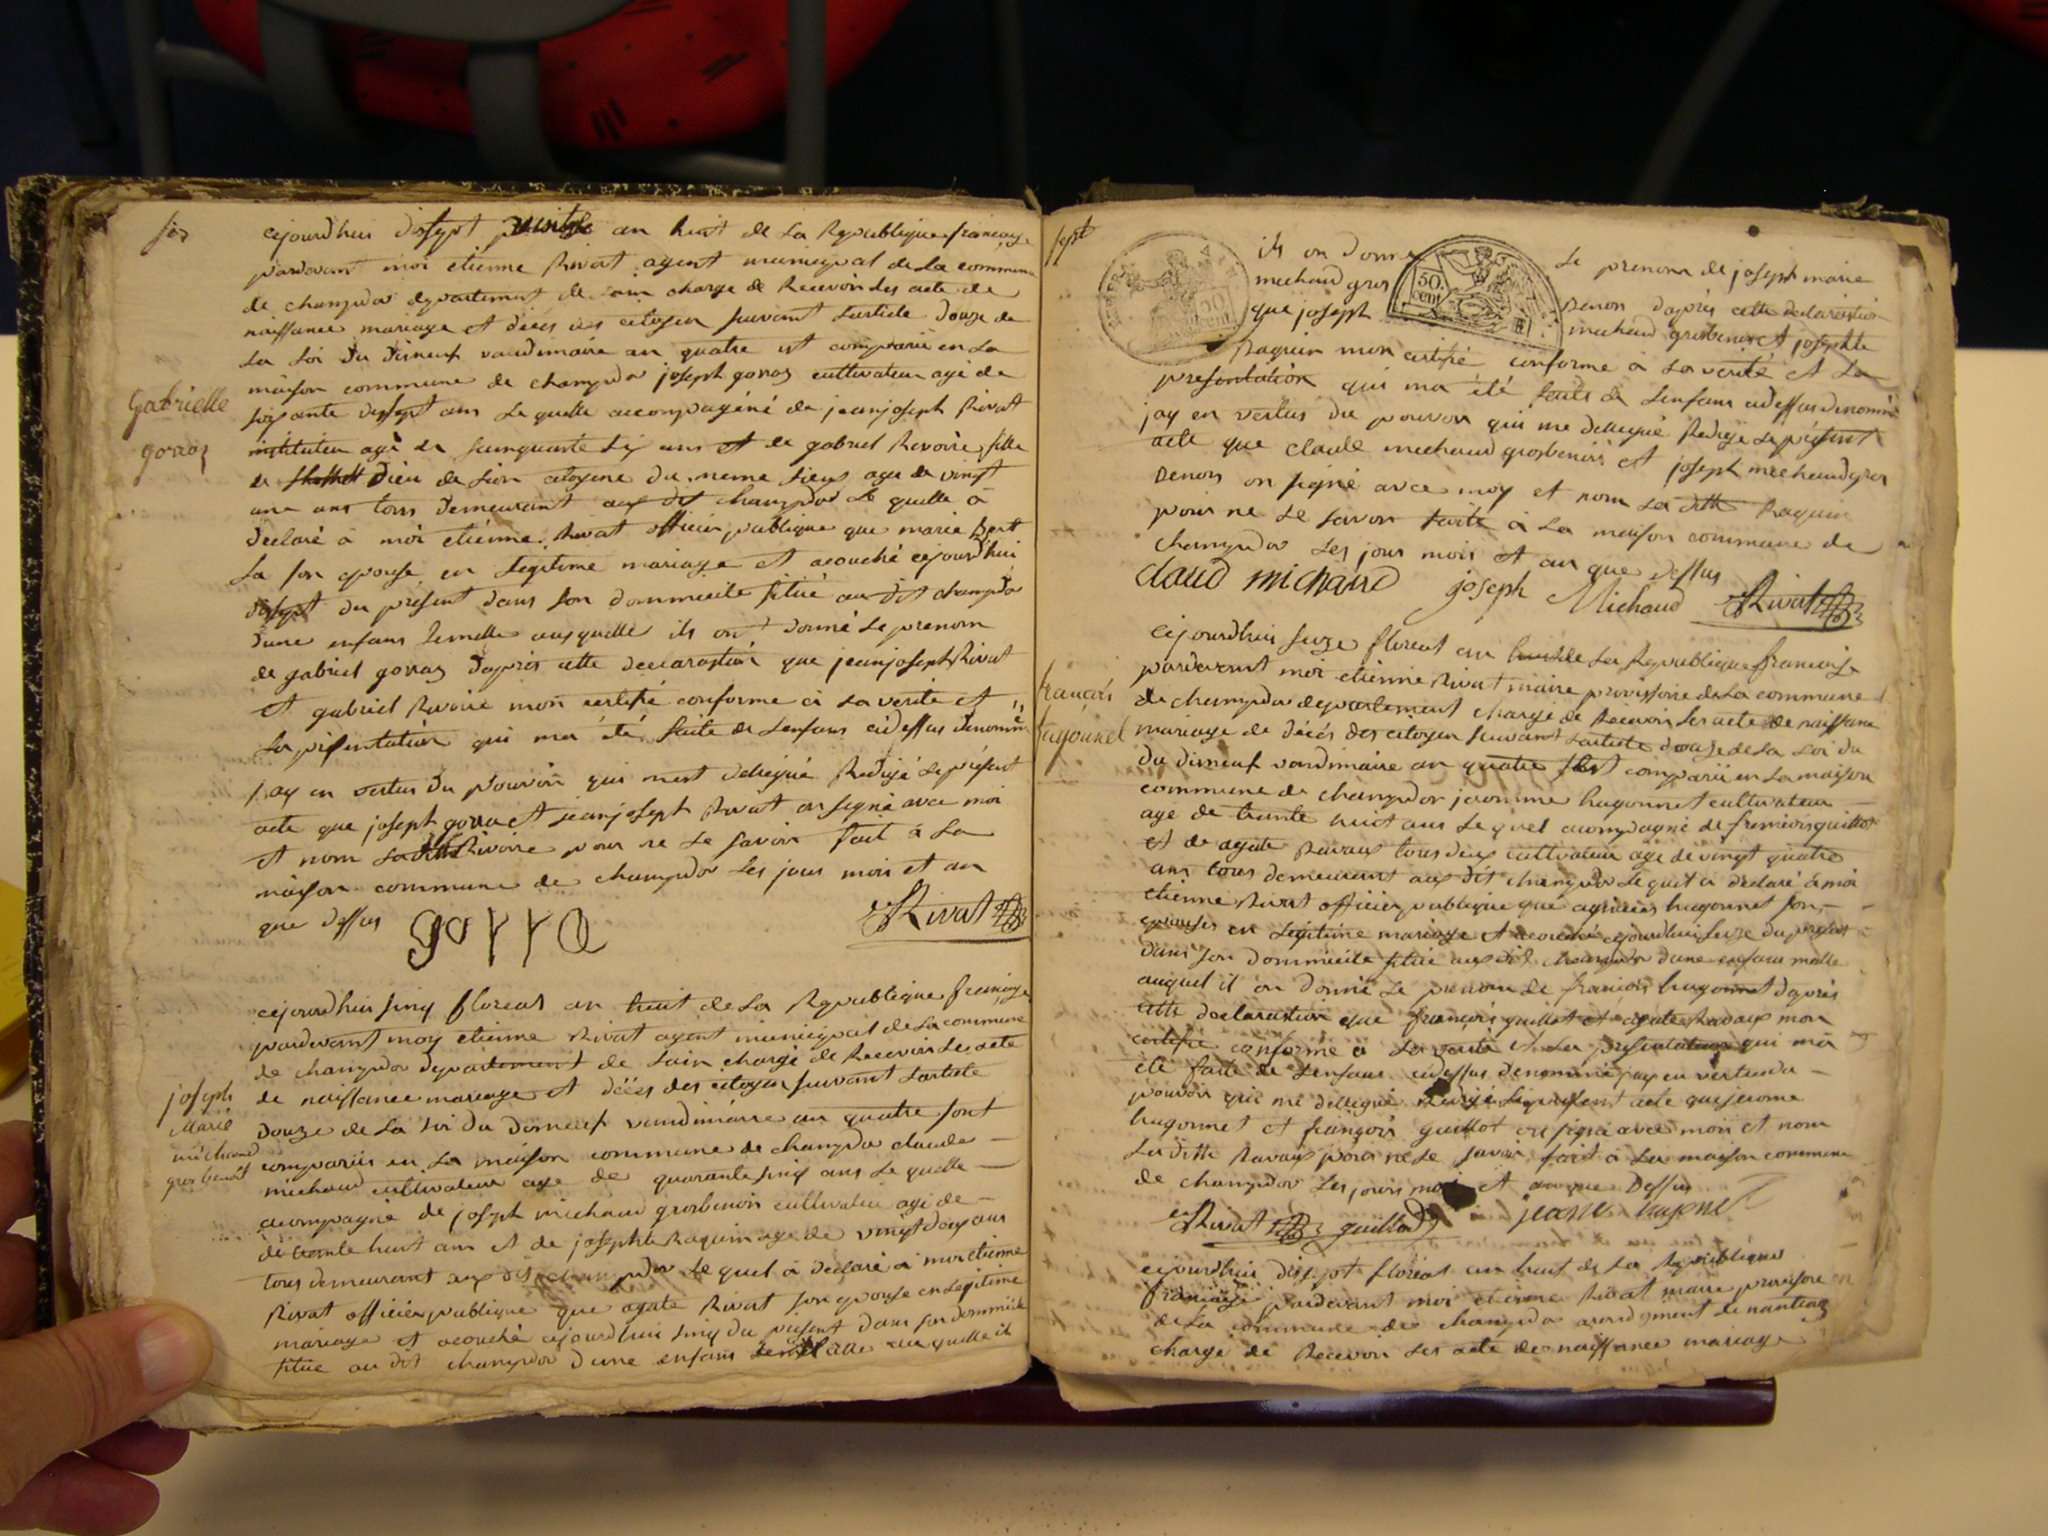 six
cejourdhui disept ventose an huit de La Republique françoise
pardevant moi etienne Rivat agent municipal de La commune
de champdor departement de Lain charge de Recevoir Les acte de
naissance mariage et décés des citoyen suivant Larticle Douze de
La Loi du disneuf vandimaire an quatre est comparü en La
maison commune de champdor joseph gorraz cultivateur agé de
soixante disept ans Le quelle accompagéné de jean joseph Rivat
instituteur agé de sinquante six ans et de gabriel Revoire fille
de Dieu de Lion citoyene du meme Lieux age de vingt
une ans tous Demeurant aux dit champdor Le quelle a
Déclaré à moi etiénne Rivat officier publique que marie Bertt
La son epouse en Legitime mariage et acouché cejourdhui
disept du présent dans son dommicile situé au dit champdor
Dune enfans femelle au quelle ils ont Donné Le prenom
de gabriel gorraz daprés cette declaration que jeanjoseph Rivat
et gabriel Rivoire mon certifié conforme à La verité et
La présentation qui ma été faite de Lenfans cidessus dénommé
jay en vertus du pouvoir qui mest deliegué Redigé Le présent
acte que joseph gorra et jeanjoseph Rivat on signé avec moi
et nom La ditte Rivoire pour ne Le savoir fait à La
maison commune de champdor Les jour mois et an
que dessus
gorra
Rivat
Gabrielle
gorraz
cejourdhui sinq floreal an huit de La Republique françoise
pardevant moy etienne Rivat agent municipal de La commune
de champdor departement de Lain chargé de Recevoir Les acte
de naissance mariage et décés des citoyen suivant Lartiele
douze de La Loi du disneuf vandimiaire an quatre sont
comparüs en La maison commune de champdor claude
michaud cultivateur age de quarante sinq ans Le quelle
acompagné de joseph michaud grosbenoir cultivateur agé de
de trante huit ans et de josephte Raquin age de vingt deux ans
tous demeurant aux dit champdor Le quel à declaré à moi etienne
Rivat officier publique que agate Rivat son epouse en Legitime
mariage et acouché cejourdhui sinq du présent dans son dommicile
situé au dit champdor dune enfans au quelle il
joseph
Marie
michaud
gros benoit
sept
ils on donné Le prenom de joseph marie
mechaud gros Benois daprés cette declaration
que joseph mechaud grosbenois et josephte
Raquin mon certifié conforme à La verité et La
presentation qui ma été faite de Lenfans cidessus denommé
jay en vertus du pouvoir qui me dellegué Redigé Le présent
acte que claude mechaud grosbenois et joseph mechaud gros
Benois on signé avec moy et nom La ditte Raquin
pour ne Le savoir faite à La maison commune de
champdor Les jour mois et an que dessus
claud michaud
joseph Michaud
Rivat
cejourdhui seize floreal an huit de La Republique françoise
pardevant moi etienne Rivat maire provissoire de La commune
de champdor departement chargé de Recevoir Les acte de naissance
mariage de décés des citoyen suivant Lartiele douze de La Loi du
du disneuf vandimaire an quatre est comparü en La maison
commune de champdor jeromme hugonnet cultivateur
age de trante huit ans Le quel acompagné de françois guillot
et de agate Ravaux tous deux cultivateur age de vingt quatre
ans tous demeurant aux dit champdor Le quel à declaré à moi
etienne Rivat officier publique que hugonnet son
epouse en Legitime mariage et acouché cejourdhui seize du présent
dans son dommicile situé aux dit champdor dune enfans malle
auquel il on donné Le prenom de françois hugonnet daprés
cette declaration que françois guillot et agate Ravaux mon
certifié conforme à La verité et La presentation qui ma
été faite de Lenfans cidessus denommé jay en vertus du
pouvoir qui me dellegué Redigé Le présent acte que jerome
hugonnet et françois guillot on signé avec moi et nom
La ditte Ravaux pour ne Le savoir fait à La maison commune
de champdor Les jours mois et an que Dessus
Rivat guillot
françois
hugonnet
cejourdhui disept floréal an huit de La Republique
françoise pardevant moi etienne Rivat maire provisoire
de La commune de champdor arondisment de nantua
chargé de Recevoir Les acte de naissance mariage